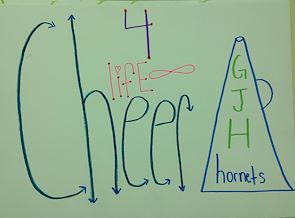 4
life ∞
Cheer
G
J
H
hornets